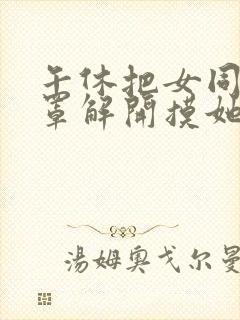 午休把女同
罩解開摸她
湯姆奧戈爾曼